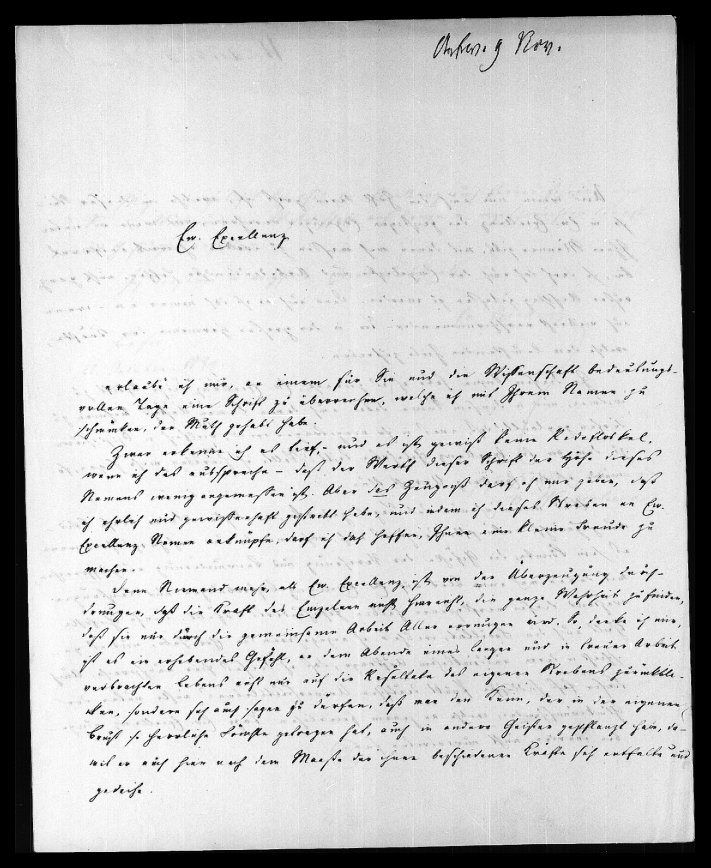 Antw. 9 Nov.
Ew. Excellenz
erlaube ich mir, an einem für Sie und die Wissenschaft bedeutungs-
vollen Tage eine Schrift zu überreichen, welche ich mit Ihrem Namen zu
schmücken, den Muth gehabt habe.
Zwar erkenne ich es tief, – und es ist gewiß keine Redefloskel,
wenn ich das ausspreche – daß der Werth dieser Schrift der Höhe dieses
Namens wenig angemessen ist. Aber das Zeugniß darf ich mir geben, daß
ich ehrlich und gewissenhaft gestrebt habe, und indem ich dieses Streben an Ew.
Excellenz Namen anknüpfe, darf ich doch hoffen, Ihnen eine kleine Freude zu
machen.
Denn Niemand mehr, als Ew. Excellenz, ist von der Überzeugung durch-
drungen, daß die Kraft des Einzelnen nicht hinreicht, die ganze Wahrheit zu finden,
daß sie nur durch die gemeinsame Arbeit Aller errungen wird. So, denke ich mir,
ist es ein erhebendes Gefühl, an dem Abende eines langen und in treuer Arbeit
verbrachten Lebens nicht nur auf die Resultate des eigenen Strebens zurückbli-
cken, sondern sich auch sagen zu dürfen, daß man den Keim, der in der eigenen
Brust so herrliche Früchte getragen hat, auch in andere Geister gepflanzt habe, da-
mit er auch hier nach dem Maaße der ihnen beschiedenen Kräfte sich entfalte und
gedeihe.